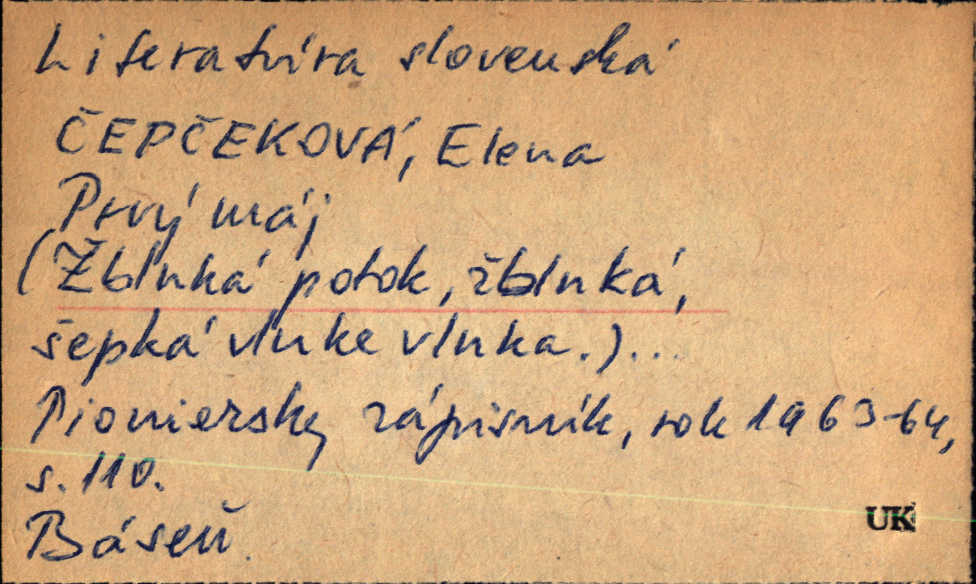 Literatúra slovenská
ČEPČEKOVÁ, Elena
Prvý máj
(Žblnká potok, žblnká,
šepká vlnke vlnka.)...
Pioniersky zápisník, rok 1963-64,
s. 110.
Báseň.
UK